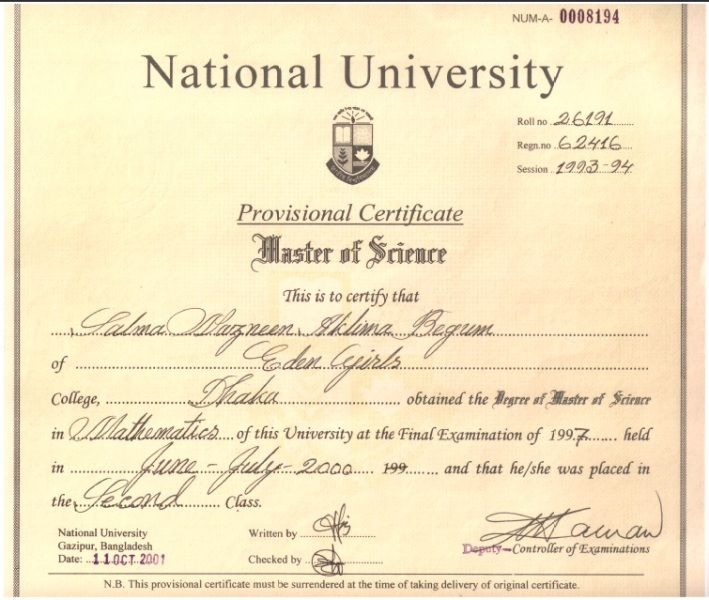 NUM-A- 0008194
National University
Roll no 26191
Regn.no 62416
Session 1993-94
Provisional Certificate
Master of Science
This is to certify that
Salma Nazneen Aklima Begum
of Eden Girls
College, Dhaka obtained the Degree of Master of Science
in Mathematics of this University at the Final Examination of 1997 held
in June - July - 2000 199 and that he/she was placed in
the Second Class.
National University
Gazipur, Bangladesh
Date: 11 OCT 2001
Written by
Checked by
Deputy-Controller of Examinations
N.B. This provisional certificate must be surrendered at the time of taking delivery of original certificate.